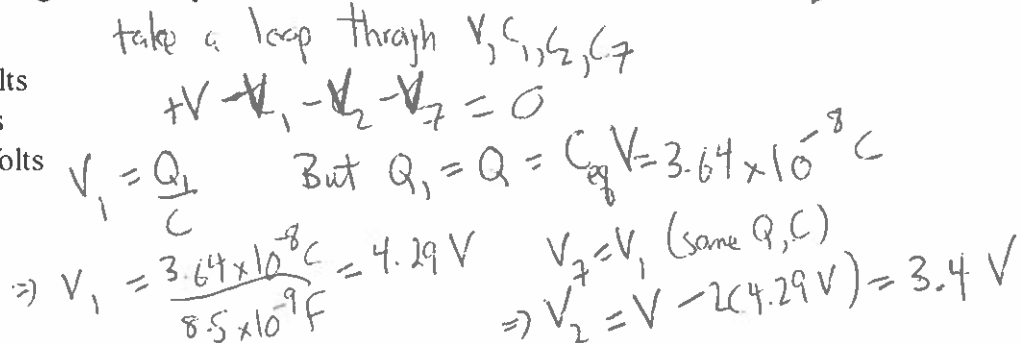 take a loop through V, C₁, C₂, C₇
lts
+V - V₁ - V₂ - V₇ = 0
s
olts
V₁ = Q₁/C But Q₁ = Q = C_eq V = 3.64 x 10⁻⁸ C
⇒ V₁ = 3.64 x 10⁻⁸ C / 8.5 x 10⁻⁹ F = 4.29 V V₇ = V₁ (same Q, C)
⇒ V₂ = V - 2(4.29 V) = 3.4 V